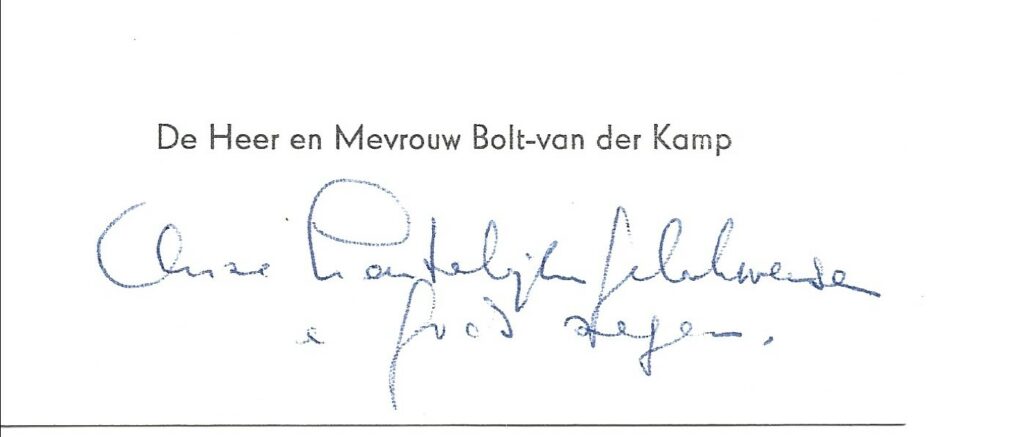 De Heer en Mevrouw Bolt-van der Kamp
Onze hartelijke gelukwensen
e Gods zegen.